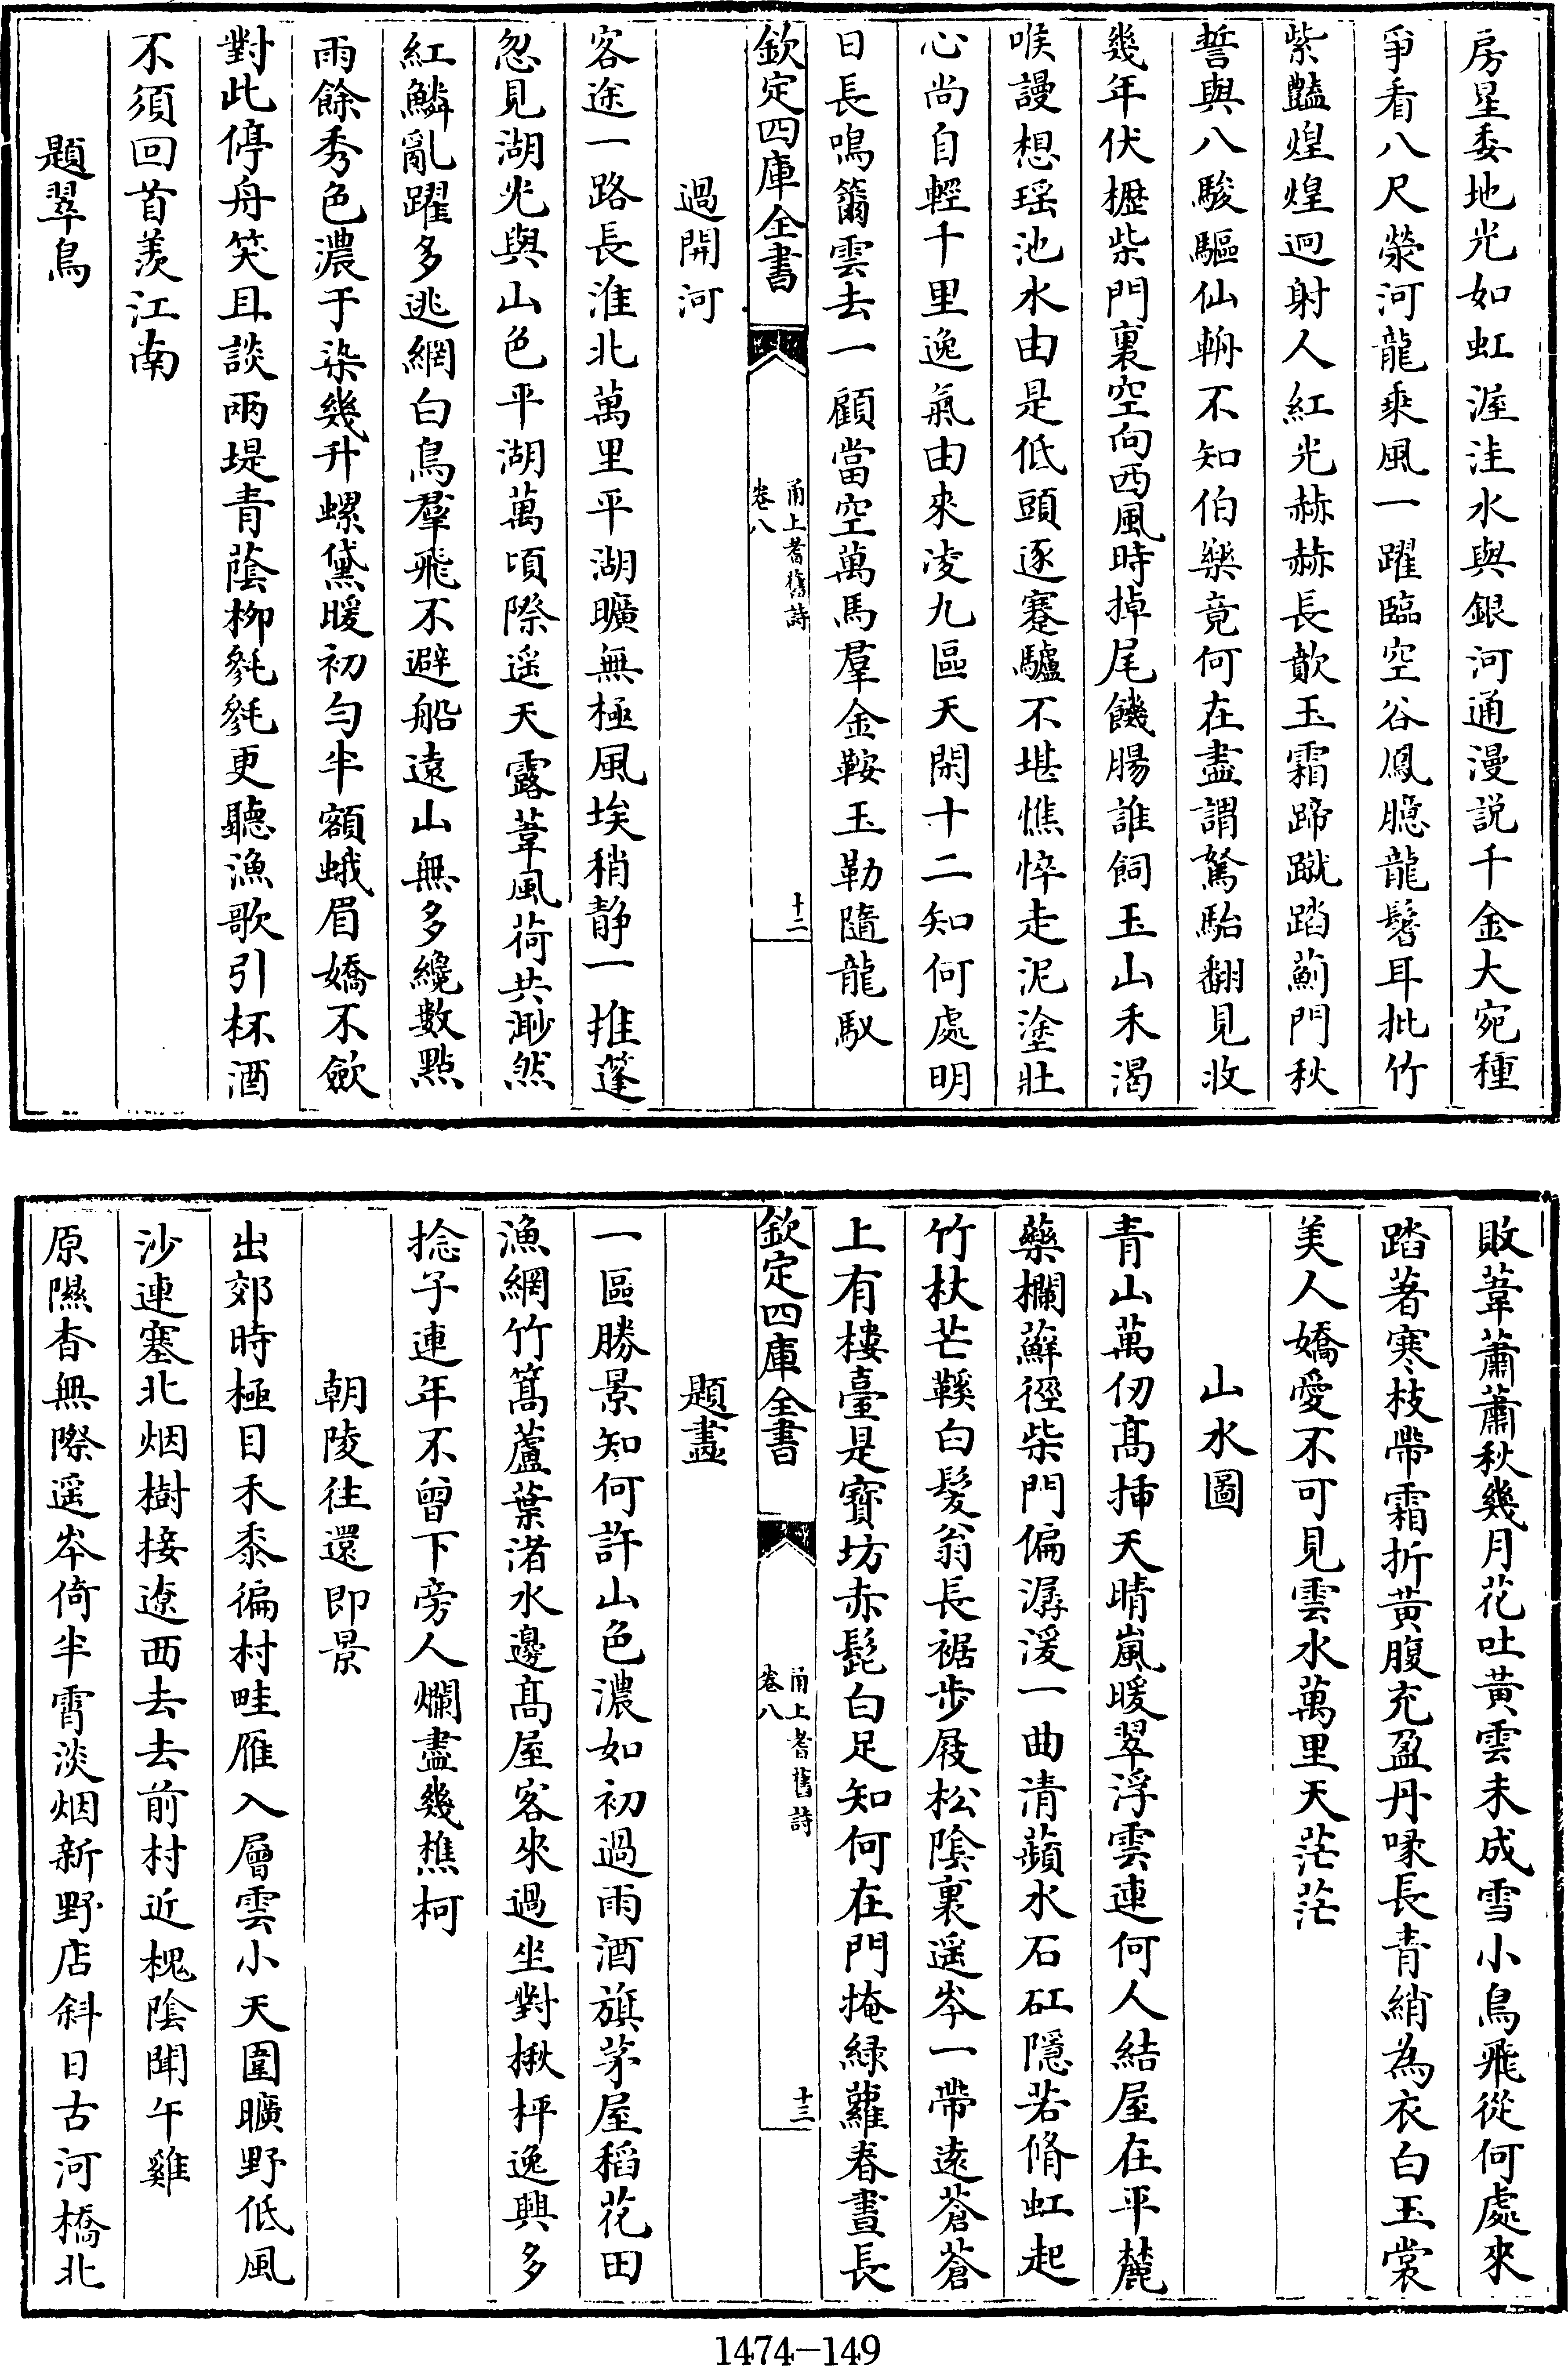 房星委地光如虹渥洼水與銀河通漫説千金大宛種
爭看八尺滎河龍乘風一躍臨空谷鳳臆龍鬐耳批竹
紫豔煌煌迥射人紅光赫赫長歕玉霜蹄蹴踏薊門秋
誓與八駿驅仙輈不知伯樂竟何在盡謂駑駘翻見收
幾年伏櫪柴門裏空向西風時掉尾饑腸誰飼玉山禾渴
喉謾想瑶池水由是低頭逐蹇驢不堪憔悴走泥塗壯
心尚自輕千里逸氣由來凌九區天閑十二知何處明
日長鳴籋雲去一顧當空萬馬羣金鞍玉勒隨龍馭
欽定四庫全書
甬上耆舊詩
卷八
十二
過開河
客途一路長淮北萬里平湖曠無極風埃稍静一推蓬
忽見湖光與山色平湖萬頃際遥天露葦風荷共渺然
紅鱗亂躍多逃網白鳥羣飛不避船遠山無多纔數點
雨餘秀色濃于染幾升螺黛暖初勻半額蛾眉嬌不歛
對此停舟笑且談兩堤青蔭栁毿毿更聽漁歌引杯酒
不須回首羨江南
題翠鳥
敗葦蕭蕭秋幾月花吐黃雲未成雪小鳥飛從何處來
踏著寒枝帶霜折黃腹充盈丹喙長青綃為衣白玉裳
美人嬌愛不可見雲水萬里天茫茫
山水圖
青山萬仞髙揷天晴嵐暖翠浮雲連何人結屋在平麓
藥欄蘚徑柴門偏潺湲一曲清蘋水石矼隱若脩虹起
竹杖芒鞵白髮翁長裾步屐松隂裏遥岑一帶遠蒼蒼
上有樓臺是寶坊赤髭白足知何在門掩緑蘿春晝長
欽定四庫全書
甬上耆舊詩
卷八
十三
題畫
一區勝景知何許山色濃如初過雨酒旗茅屋稻花田
漁網竹篙蘆葉渚水邊髙屋客來過坐對楸枰逸興多
捻子連年不曾下旁人爛盡幾樵柯
朝陵往還即景
出郊時極目禾黍徧村畦雁入層雲小天圍曠野低風
沙連塞北烟樹接遼西去去前村近槐隂聞午雞
原隰杳無際遥岑倚半霄淡烟新野店斜日古河橋北
1474-149